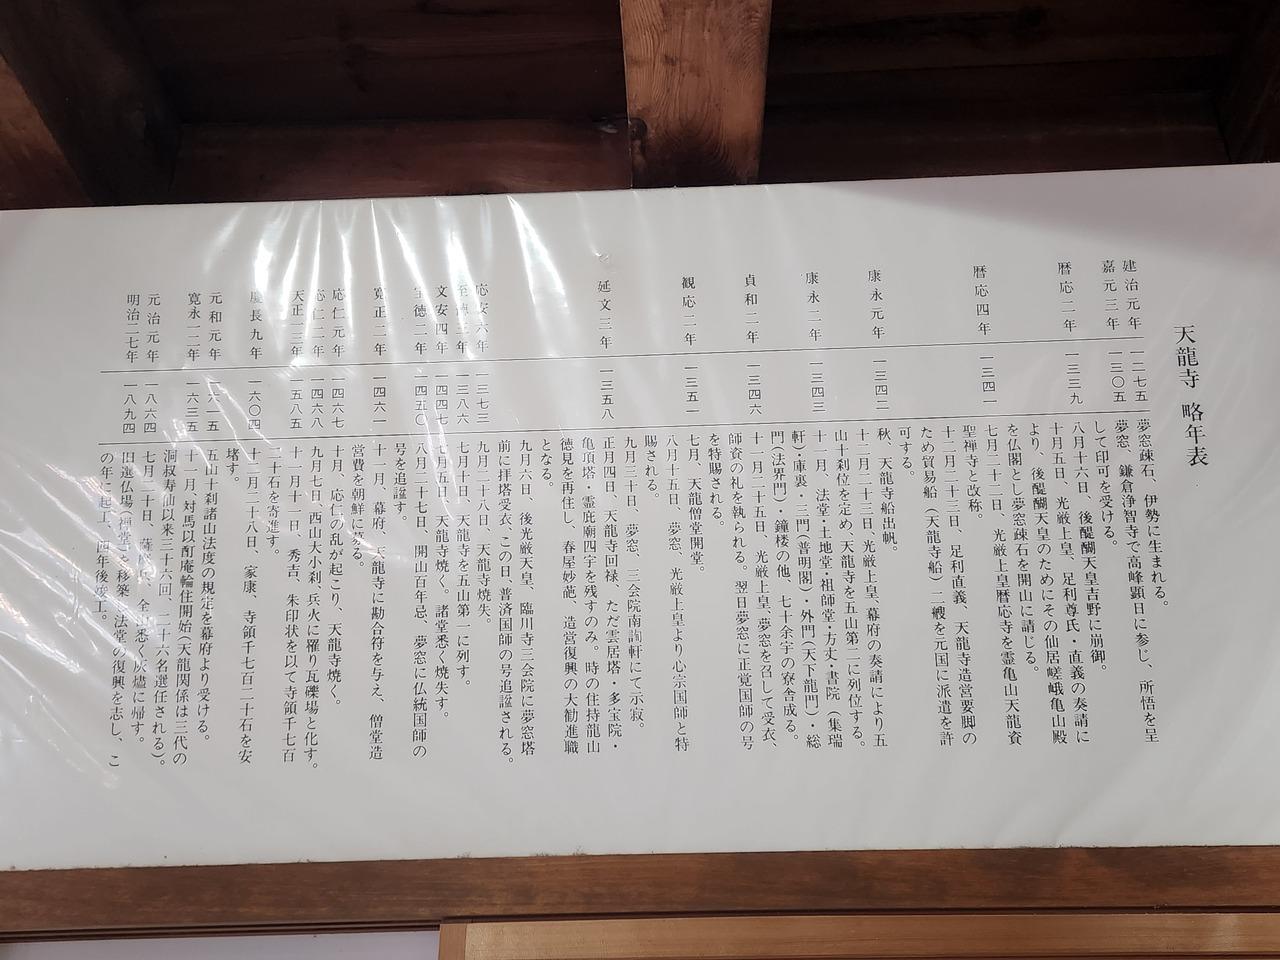 天龍寺 略年表
建治元年 一二七五 夢窓疎石、伊勢に生まれる。
嘉元三年 一三〇五 夢窓、鎌倉浄智寺で高峰顕日に参じ、所悟を呈
して印可を受ける。
暦応二年 一三三九 八月十六日、後醍醐天皇吉野に崩御。
十月五日、光厳上皇、足利尊氏・直義の奏請に
より、後醍醐天皇のためにその仙居嵯峨亀山殿
を仏閣とし夢窓疎石を開山に請じる。
暦応四年 一三四一 七月二十二日、光厳上皇暦応寺を霊亀山天龍資
聖禅寺と改称。
十二月二十三日、足利直義、天龍寺造営要脚の
ため貿易船（天龍寺船）二艘を元国に派遣を許
可する。
康永元年 一三四二 秋、天龍寺船出帆。
十二月二十三日、光厳上皇、幕府の奏請により五
山十刹位を定め、天龍寺を五山第二に列位する。
康永二年 一三四三 十一月、法堂・土地堂・祖師堂・方丈・書院（集瑞
軒）・庫裏・三門（普明閣）・外門（天下龍門）・総
門（法界門）・鐘楼の他、七十余宇の寮舎成る。
貞和二年 一三四六 十一月二十五日、光厳上皇、夢窓を召して受衣、
師資の礼を執られる。翌日夢窓に正覚国師の号
を特賜される。
観応二年 一三五一 七月、天龍僧堂開堂。
八月十五日、夢窓、光厳上皇より心宗国師と特
賜される。
九月三十日、夢窓、三会院南詢軒にて示寂。
延文三年 一三五八 正月四日、天龍寺回禄、ただ雲居塔・多宝院・
亀項塔・霊庇廟四宇を残すのみ。時の住持龍山
徳見を再住し、春屋妙葩、造営復興の大勧進職
となる。
九月六日、後光厳天皇、臨川寺三会院に夢窓塔
前に拝塔受衣、この日、普済国師の号追諡される。
応安六年 一三七三 九月二十八日、天龍寺焼失。
至徳三年 一三八六 七月十日、天龍寺を五山第一に列す。
文安四年 一四四七 七月五日、天龍寺焼く。諸堂悉く焼失す。
宝徳二年 一四五〇 八月二十七日、開山百年忌、夢窓に仏統国師の
号を追諡す。
寛正二年 一四六一 十一月、幕府、天龍寺に勘合符を与え、僧堂造
営費を朝鮮に募る。
応仁元年 一四六七 十月、応仁の乱が起こり、天龍寺焼く。
応仁二年 一四六八 九月七日、西山大小刹、兵火に罹り瓦礫場と化す。
天正一三年 一五八五 十一月十一日、秀吉、朱印状を以て寺領千七百
二十石を寄進す。
慶長九年 一六〇四 十二月二十八日、家康、寺領千七百二十石を安
堵す。
元和元年 一六一五 五山十刹諸山法度の規定を幕府より受ける。
寛永一二年 一六三五 十一月、対馬以酊庵輪住開始（天龍関係は三代の
洞叔寿仙以来三十六回、二十六名選任される）。
元治元年 一八六四 七月二十日、薩 兵、全山悉く灰燼に帰す。
明治二七年 一八九四 旧選仏場（禅堂）を移築、法堂の復興を志し、こ
の年に起工、四年後竣工。